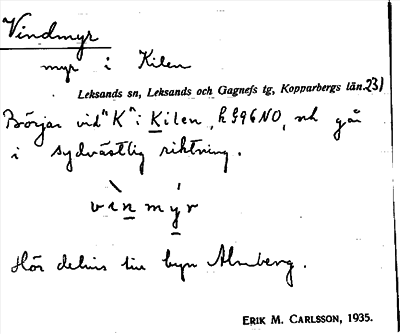 Vindmyr
myr i Kilen
Leksands sn, Leksands och Gagnefs tg, Kopparbergs län. 231
Börjar vid "K" i Kilen, h 996 NO, och gå
i sydvästlig riktning.
vinmyr
Hör delvis till byn Almberg.
ERIK M. CARLSSON, 1935.